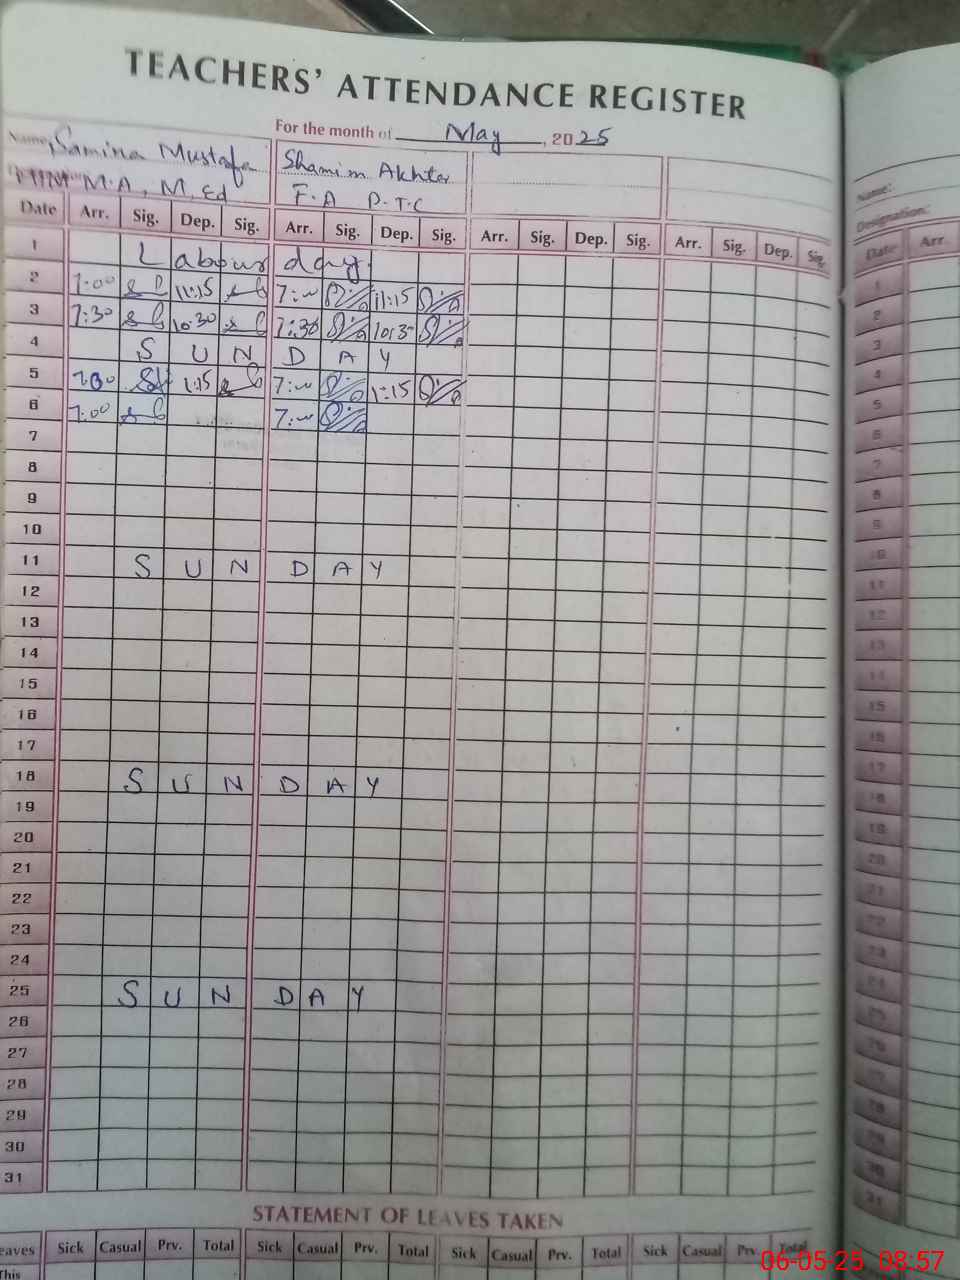 TEACHERS' ATTENDANCE REGISTER
For the month of May, 2025
Name: Samina Mustafa Shamim Akhter
M.A, M.Ed F.A P.T.C
Name:
Designation:
Date Arr. Sig. Dep. Sig. Arr. Sig. Dep. Sig. Arr. Sig. Dep. Sig. Arr. Sig. Dep. Sig. Date Arr.
1 Labour day. 1
2 7:00 11:15 7:00 11:15 2
3 7:30 10:30 7:30 10:30 3
4 S U N D A Y 3
5 7:00 1:15 7:00 1:15 4
6 7:00 7:00 5
7 6
8 7
9 8
10 9
11 S U N D A Y 10
12 11
13 12
14 13
15 14
16 15
17 16
18 S U N D A Y 17
19 18
20 19
21 20
22 21
23 22
24 23
25 S U N D A Y
26
27
28
29
30
31
STATEMENT OF LEAVES TAKEN
eaves Sick Casual Prv. Total Sick Casual Prv. Total Sick Casual Prv. Total Sick Casual Prv. Total
This
06-05-25 08:57